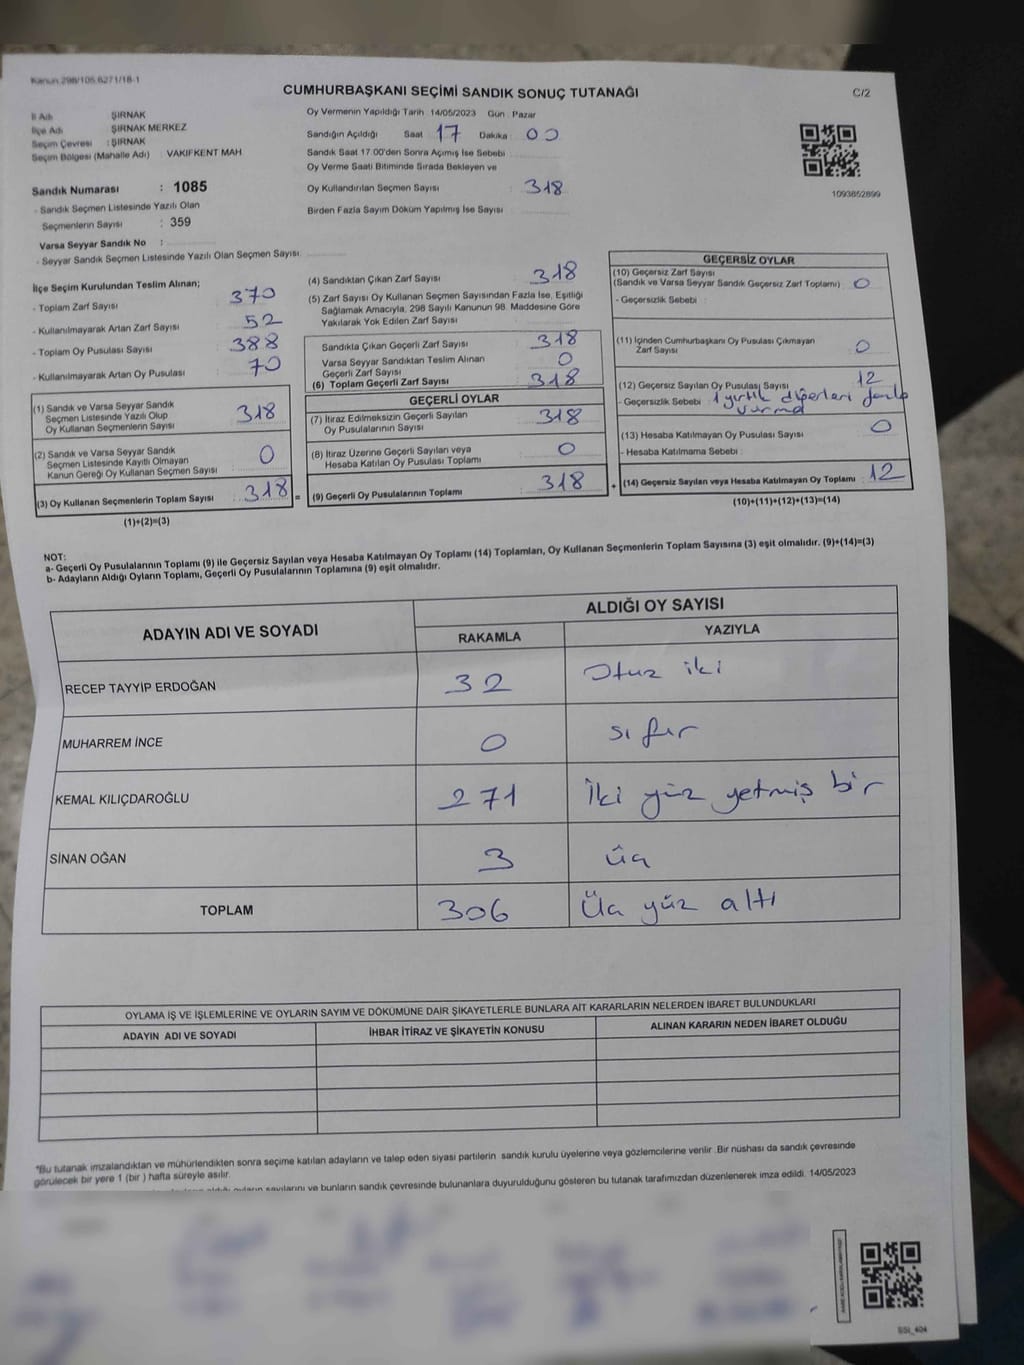 Kanun 298/105.6271/18-1
CUMHURBAŞKANI SEÇİMİ SANDIK SONUÇ TUTANAĞI
C/2
İl Adı : ŞIRNAK
İlçe Adı : ŞIRNAK MERKEZ
Seçim Çevresi : ŞIRNAK
Seçim Bölgesi (Mahalle Adı) : VAKIFKENT MAH
Sandık Numarası : 1085
- Sandık Seçmen Listesinde Yazılı Olan
Seçmenlerin Sayısı : 359
Varsa Seyyar Sandık No :
- Seyyar Sandık Seçmen Listesinde Yazılı Olan Seçmen Sayısı:
Oy Vermenin Yapıldığı Tarih : 14/05/2023 Gün : Pazar
Sandığın Açıldığı Saat : 17 Dakika : 00
Sandık Saat 17.00'den Sonra Açımış İse Sebebi
Oy Verme Saati Bitiminde Sırada Bekleyen ve
Oy Kullandırılan Seçmen Sayısı : 318
Birden Fazla Sayım Döküm Yapılmış İse Sayısı :
1093852899
İlçe Seçim Kurulundan Teslim Alınan;
- Toplam Zarf Sayısı : 370
- Kullanılmayarak Artan Zarf Sayısı : 52
- Toplam Oy Pusulası Sayısı : 388
- Kullanılmayarak Artan Oy Pusulası : 70
(1) Sandık ve Varsa Seyyar Sandık
Seçmen Listesinde Yazılı Olup
Oy Kullanan Seçmenlerin Sayısı : 318
(2) Sandık ve Varsa Seyyar Sandık
Seçmen Listesinde Kayıtlı Olmayan
Kanun Gereği Oy Kullanan Seçmen Sayısı : 0
(3) Oy Kullanan Seçmenlerin Toplam Sayısı : 318 =
(1)+(2)=(3)
(4) Sandıktan Çıkan Zarf Sayısı : 318
(5) Zarf Sayısı Oy Kullanan Seçmen Sayısından Fazla İse, Eşitliği
Sağlamak Amacıyla, 298 Sayılı Kanunun 98. Maddesine Göre
Yakılarak Yok Edilen Zarf Sayısı :
Sandıkta Çıkan Geçerli Zarf Sayısı : 318
Varsa Seyyar Sandıktan Teslim Alınan
Geçerli Zarf Sayısı : 0
(6) Toplam Geçerli Zarf Sayısı : 318
GEÇERLİ OYLAR
(7) İtiraz Edilmeksizin Geçerli Sayılan
Oy Pusulalarının Sayısı : 318
(8) İtiraz Üzerine Geçerli Sayılan veya
Hesaba Katılan Oy Pusulası Toplamı : 0
(9) Geçerli Oy Pusulalarının Toplamı : 318 +
GEÇERSİZ OYLAR
(10) Geçersiz Zarf Sayısı
(Sandık ve Varsa Seyyar Sandık Geçersiz Zarf Toplamı) : 0
- Geçersizlik Sebebi :
(11) İçinden Cumhurbaşkanı Oy Pusulası Çıkmayan
Zarf Sayısı : 0
(12) Geçersiz Sayılan Oy Pusulası Sayısı : 12
- Geçersizlik Sebebi : 1 yırtık diğerleri fazla
vurma
(13) Hesaba Katılmayan Oy Pusulası Sayısı : 0
- Hesaba Katılmama Sebebi :
(14) Geçersiz Sayılan veya Hesaba Katılmayan Oy Toplamı : 12
(10)+(11)+(12)+(13)=(14)
NOT:
a- Geçerli Oy Pusulalarının Toplamı (9) ile Geçersiz Sayılan veya Hesaba Katılmayan Oy Toplamı (14) Toplamları, Oy Kullanan Seçmenlerin Toplam Sayısına (3) eşit olmalıdır. (9)+(14)=(3)
b- Adayların Aldığı Oyların Toplamı, Geçerli Oy Pusulalarının Toplamına (9) eşit olmalıdır.
ADAYIN ADI VE SOYADI
ALDIĞI OY SAYISI
RAKAMLA YAZIYLA
RECEP TAYYİP ERDOĞAN 32 Otuz iki
MUHARREM İNCE 0 sıfır
KEMAL KILIÇDAROĞLU 271 İki yüz yetmiş bir
SİNAN OĞAN 3 üç
TOPLAM 306 Üç yüz altı
OYLAMA İŞ VE İŞLEMLERİNE VE OYLARIN SAYIM VE DÖKÜMÜNE DAİR ŞİKAYETLERLE BUNLARA AİT KARARLARIN NELERDEN İBARET BULUNDUKLARI
ADAYIN ADI VE SOYADI İHBAR İTİRAZ VE ŞİKAYETİN KONUSU ALINAN KARARIN NEDEN İBARET OLDUĞU
*Bu tutanak imzalandıktan ve mühürlendikten sonra seçime katılan adayların ve talep eden siyasi partilerin sandık kurulu üyelerine veya gözlemcilerine verilir .Bir nüshası da sandık çevresinde
görülecek bir yere 1 (bir ) hafta süreyle asılır.
aldığı oyların sayılarını ve bunların sandık çevresinde bulunanlara duyurulduğunu gösteren bu tutanak tarafımızdan düzenlenerek imza edildi. 14/05/2023
SSI_404